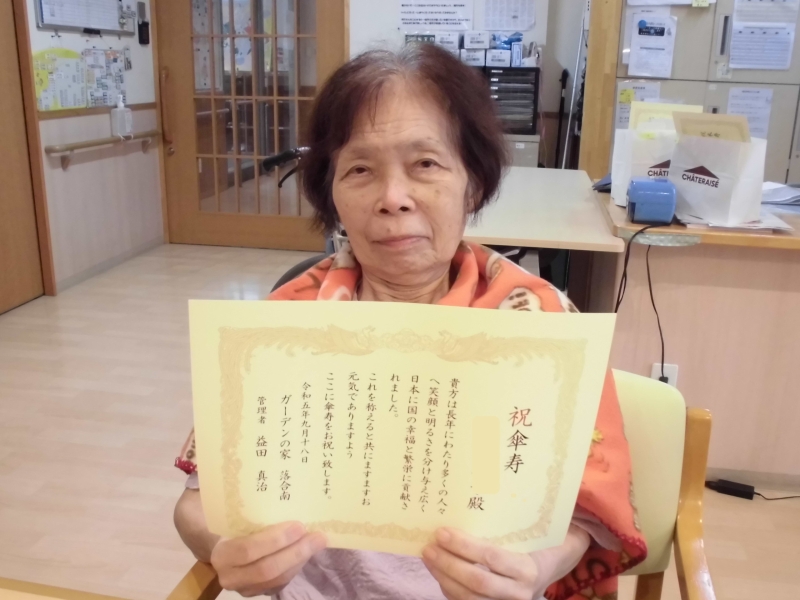 祝傘寿
殿
貴方は長年にわたり多くの人々
へ笑顔と明るさを分け与え広く
日本に国の幸福と繁栄に貢献さ
れました。
これを称えると共にますますお
元気でありますよう
ここに傘寿をお祝い致します。
令和五年九月十八日
ガーデンの家 落合南
管理者 益田 真治
CHÂTERAISÉ
CHÂTERAISÉ